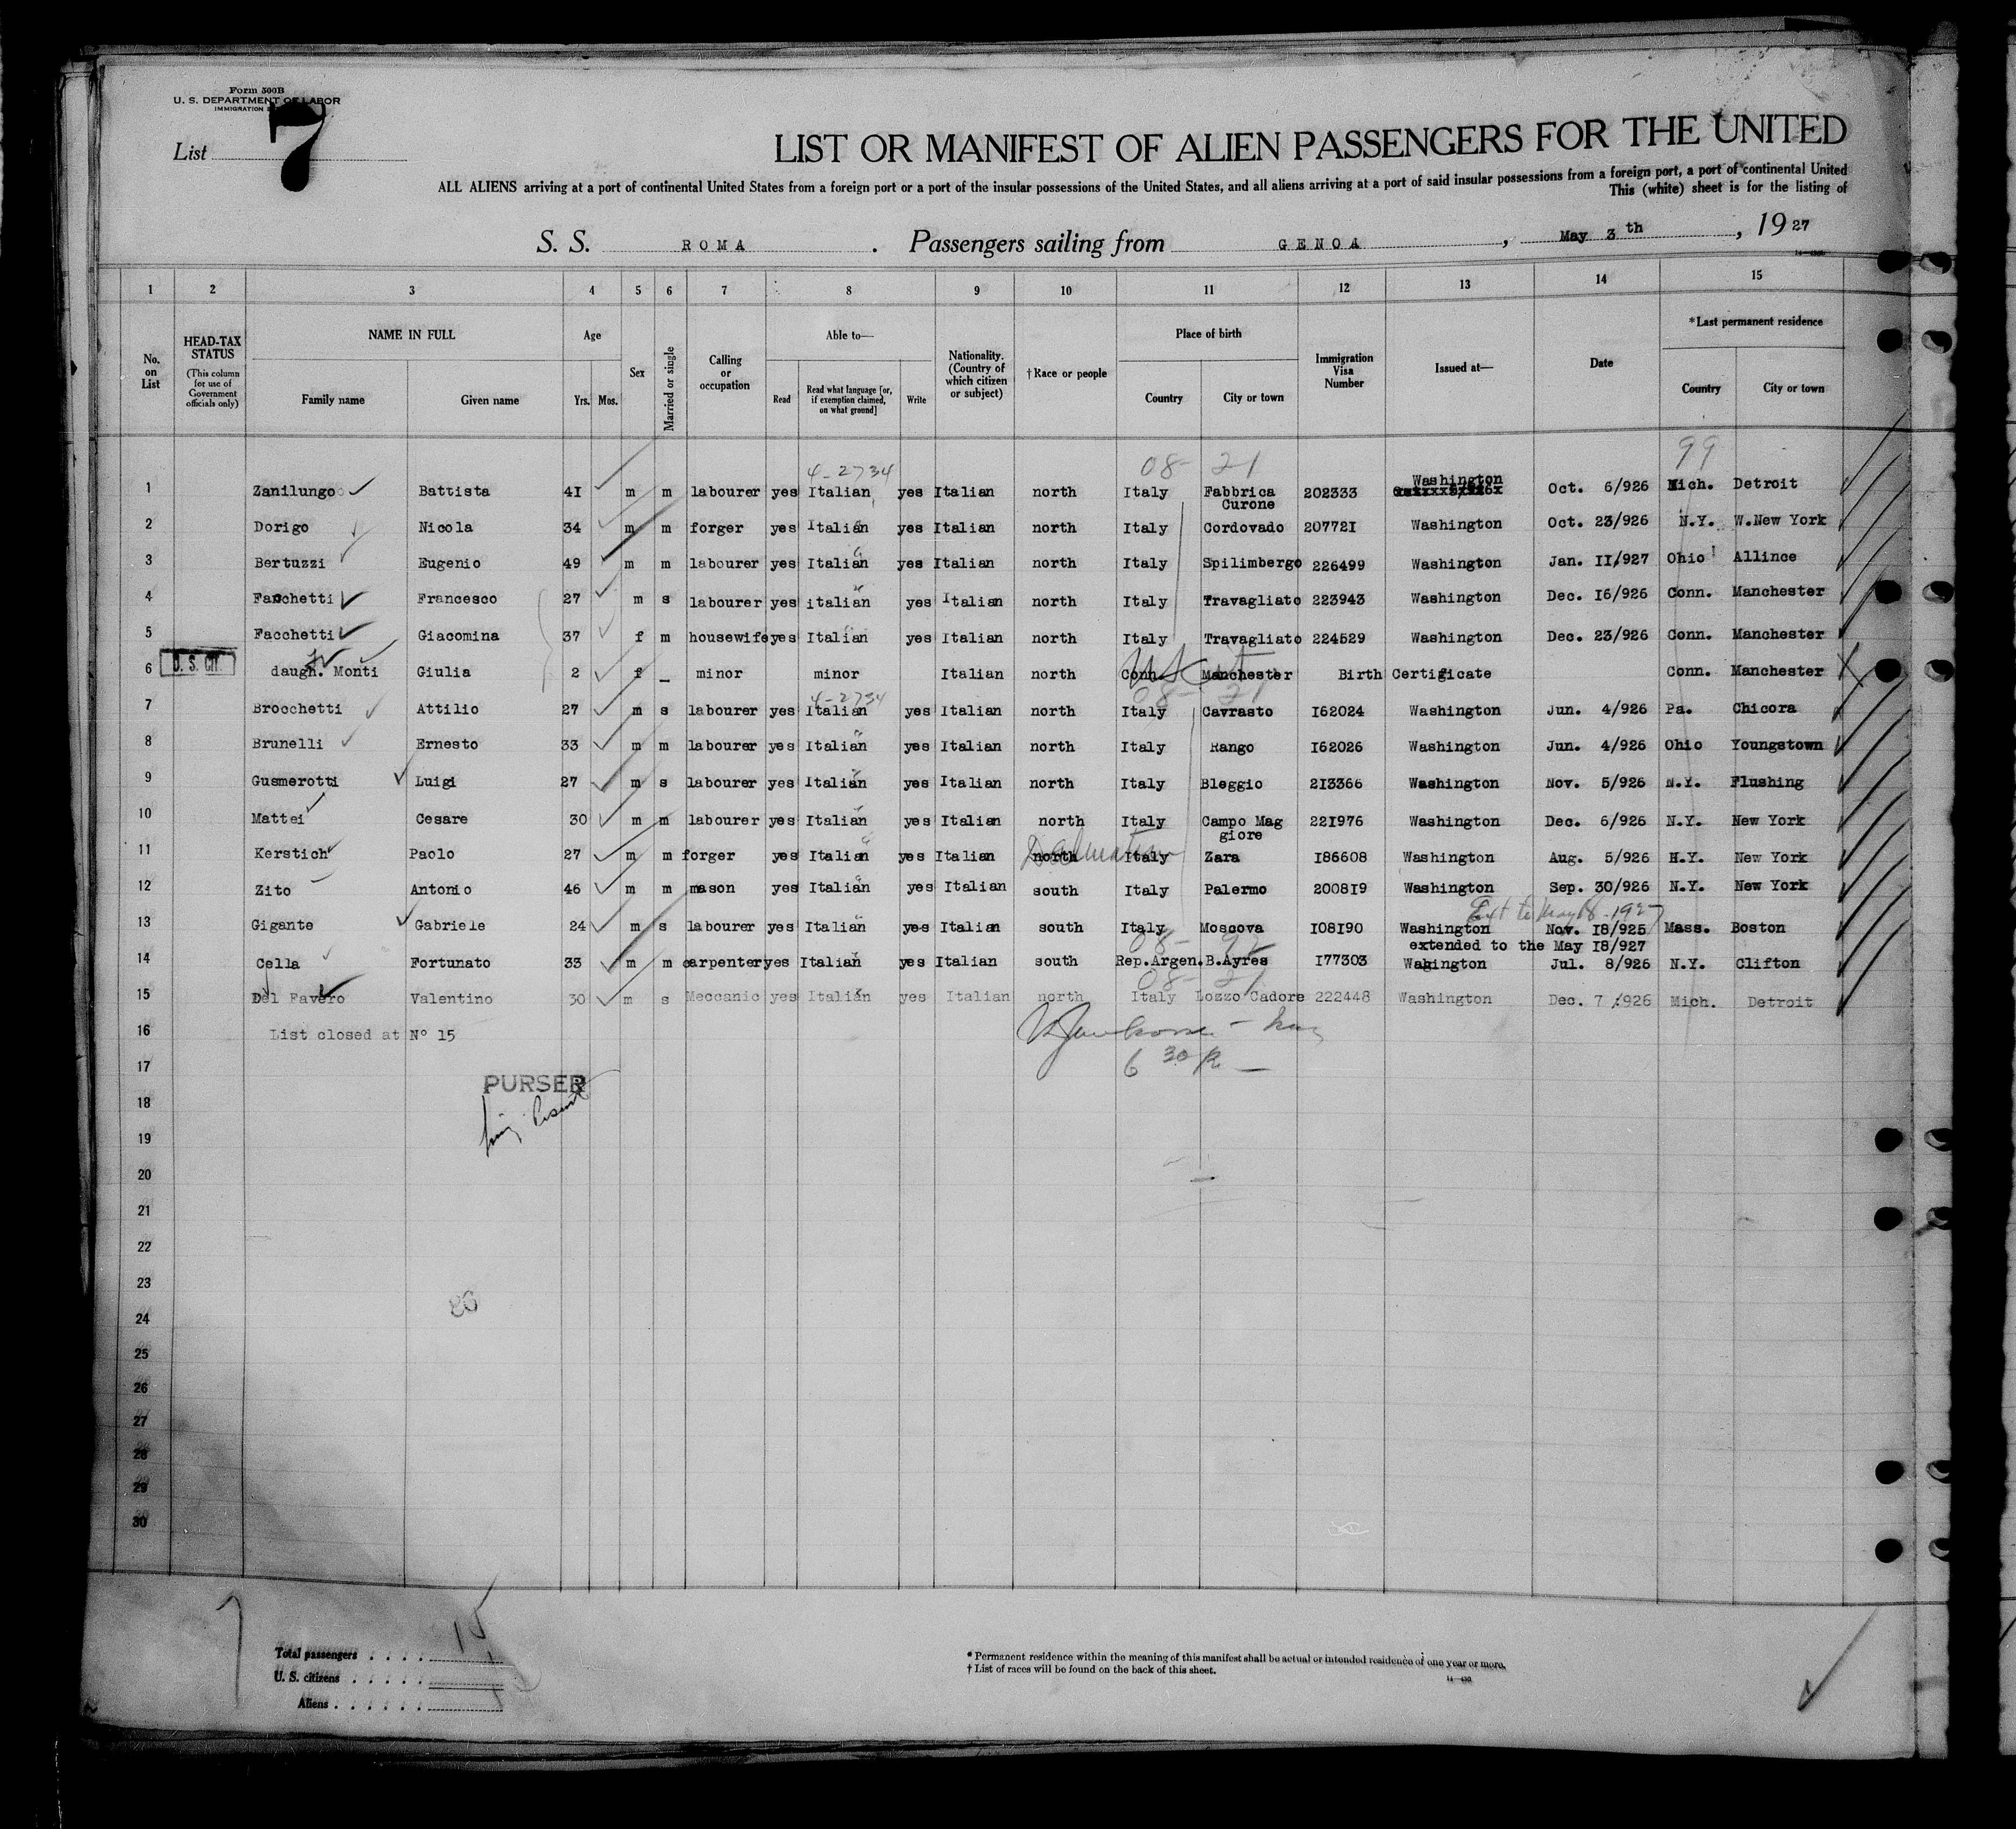 Form 500B
U. S. DEPARTMENT OF LABOR
IMMIGRATION
List 7
LIST OR MANIFEST OF ALIEN PASSENGERS FOR THE UNITED
ALL ALIENS arriving at a port of continental United States from a foreign port or a port of the insular possessions of the United States, and all aliens arriving at a port of said insular possessions from a foreign port, a port of continental United
This (white) sheet is for the listing of
S. S. ROMA . Passengers sailing from GENOA , May 3 th , 19 27
1 2 3 4 5 6 7 8 9 10 11 12 13 14 15
No. on List
HEAD-TAX STATUS (This column for use of Government officials only)
NAME IN FULL
Family name Given name
Age
Yrs. Mos.
Sex
Married or single
Calling or occupation
Able to—
Read Read what language [or, if exemption claimed, on what ground] Write
Nationality. (Country of which citizen or subject)
†Race or people
Place of birth
Country City or town
Immigration Visa Number
Issued at—
Date
*Last permanent residence
Country City or town
4-2734 08- 21 99
1 Zanilungo Battista 4I m m labourer yes Italian yes Italian north Italy Fabbrica Curone 202333 Washington Oct. 6/926 Mich. Detroit
2 Dorigo Nicola 34 m m forger yes Italian yes Italian north Italy Cordovado 20772I Washington Oct. 23/926 N.Y. W.New York
3 Bertuzzi Eugenio 49 m m labourer yes Italian yes Italian north Italy Spilimbergo 226499 Washington Jan. II/927 Ohio Allince
4 Facchetti Francesco 27 m s labourer yes italian yes Italian north Italy Travagliato 223943 Washington Dec. I6/926 Conn. Manchester
5 Facchetti Giacomina 37 f m housewife yes Italian yes Italian north Italy Travagliato 224529 Washington Dec. 23/926 Conn. Manchester
6 U. S. CIT. daugh. Monti Giulia 2 f _ minor minor Italian north Conn. Manchester Birth Certificate Conn. Manchester
4-2734 08- 21
7 Brocchetti Attilio 27 m s labourer yes Italian yes Italian north Italy Cavrasto I62024 Washington Jun. 4/926 Pa. Chicora
8 Brunelli Ernesto 33 m m labourer yes Italian yes Italian north Italy Rango I62026 Washington Jun. 4/926 Ohio Youngstown
9 Gusmerotti Luigi 27 m s labourer yes Italian yes Italian north Italy Bleggio 2I3366 Washington Nov. 5/926 N.Y. Flushing
10 Mattei Cesare 30 m m labourer yes Italian yes Italian north Italy Campo Mag giore 22I976 Washington Dec. 6/926 N.Y. New York
11 Kerstich Paolo 27 m m forger yes Italian yes Italian north Dalmatian Italy Zara I86608 Washington Aug. 5/926 N.Y. New York
12 Zito Antonio 46 m m mason yes Italian yes Italian south Italy Palermo 2008I9 Washington Sep. 30/926 N.Y. New York
Ext to May 18-1927
13 Gigante Gabriele 24 m s labourer yes Italian yes Italian south Italy Moscova I08I90 Washington Nov. I8/925 Mass. Boston
extended to the May I8/927
08-
14 Cella Fortunato 33 m m carpenter yes Italian yes Italian south Rep.Argen. B.Ayres I77303 Wahington Jul. 8/926 N.Y. Clifton
08- 21
15 Del Favero Valentino 30 m s Meccanic yes Italian yes Italian north Italy Lozzo Cadore 222448 Washington Dec. 7 /926 Mich. Detroit
16 List closed at N° 15
17 6 30
PURSER
18
19
20
21
22
23
24
25
26
27
28
29
30
Total passengers . . . . 15
U. S. citizens . . . . .
Aliens . . . . . .
* Permanent residence within the meaning of this manifest shall be actual or intended residence of one year or more.
† List of races will be found on the back of this sheet.